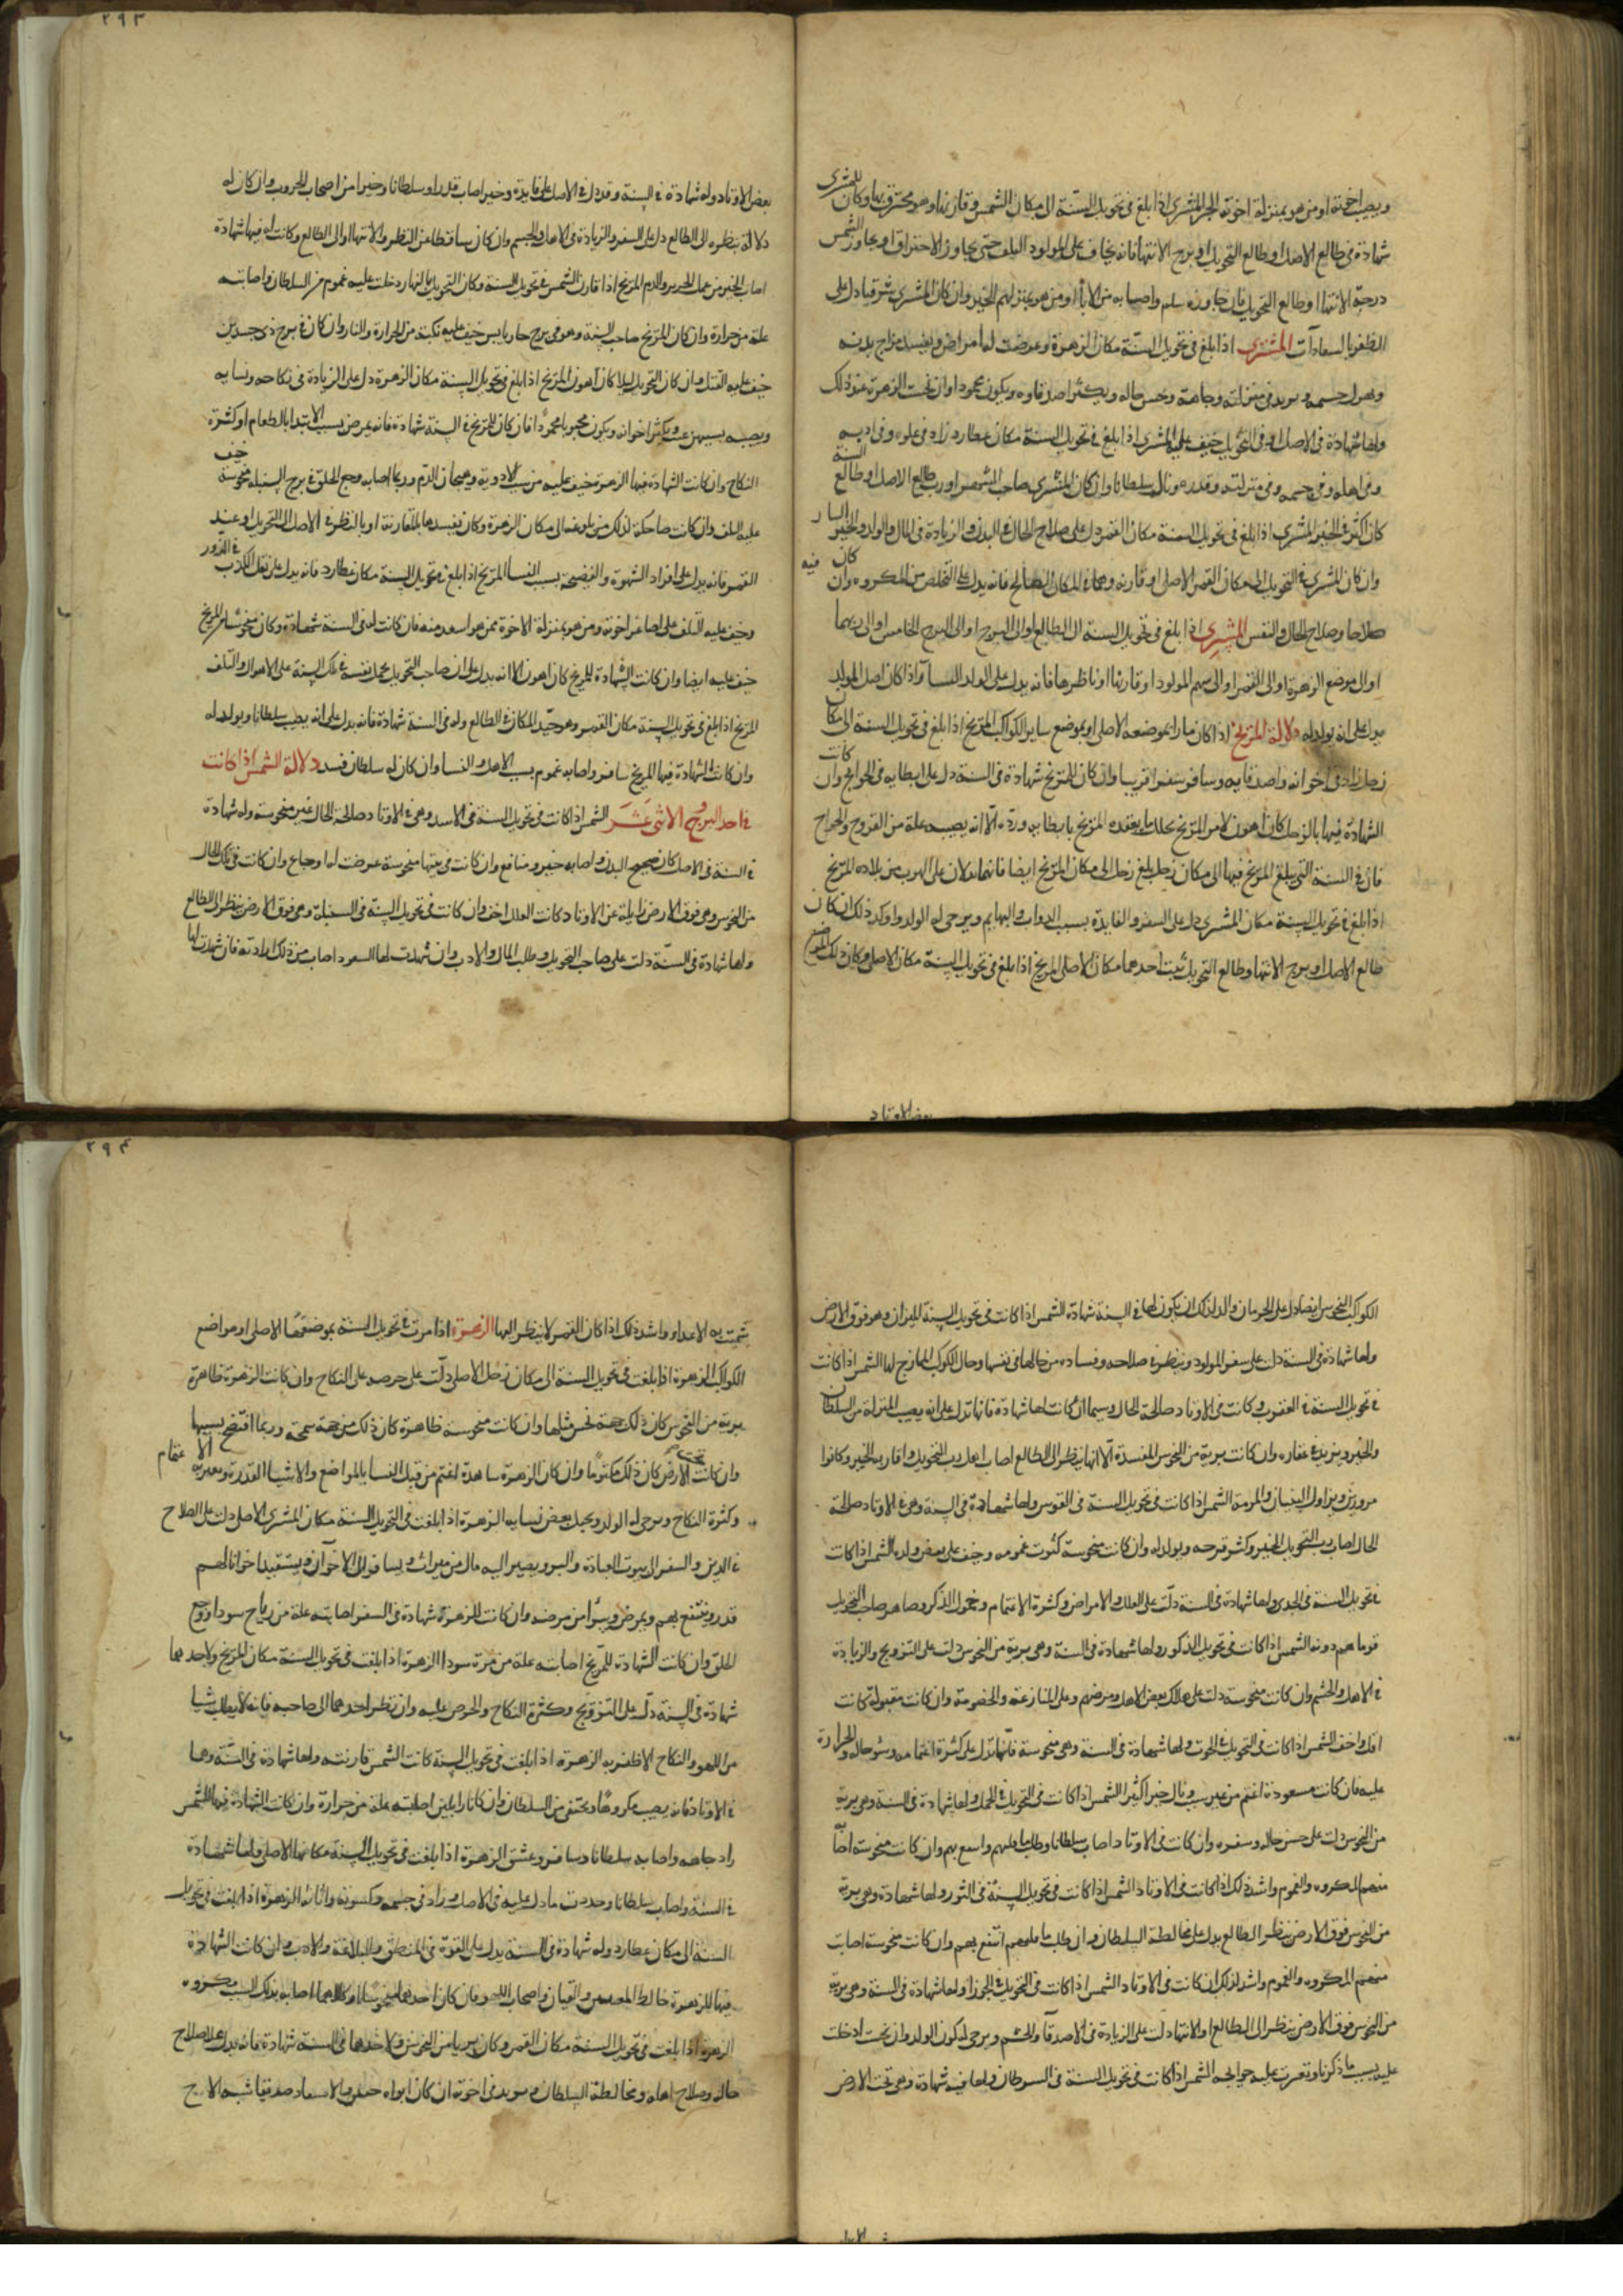 ويصيب اخوته او من هو بمنزلة اخوته الخير المشتري اذا بلغ في تحويل السنة الى مكان الشمس وقارنها وهو محترق بها وكان للمشتري
شهادة في طالع الاصل او طالع التحويل او برج الانتها فانه يخاف على المولود التلف حتى يجاوز الاحتراق او يجاوز الشمس
درجة الانتها او طالع التحويل فان جاوزه سلم واصابه من الاباء او من هو بمنزلتهم الخير وان كان المشتري شرقيا دل على
الظفر بالسعادات المشتري اذا بلغ في تحويل السنة مكان الزهرة وعرضت له امراض ويفسد مزاج بدنه
ويهزل جسمه ويزيد في منزلته وجاهه وحسن حاله ويكثر اصدقاوه ويكون محمودا وان نحست الزهرة عند ذلك
ولها شهادة في الاصل او في التحويل خيف عليه المشتري اذا بلغ في تحويل السنة مكان عطارد زاد في علمه وفي ادبه
وفي اهله وفي جسمه وفي منزلته وقدره ونال سلطانا وان كان المشتري صاحب السنة او رب طالع الاصل او طالع
كان اكثر في الخير المشتري اذا بلغ في تحويل السنة مكان القمر دل على صلاح الحال في البدن والزيادة في المال والولد والخير السار
وان كان المشتري في التحويل الى مكان القمر الاصلي او قارنه وهما في المكان الصالح فانه يدل على التخلص من المكروه وان كان فيه
صلاحا وصلاح الحال والنفس المشتري اذا بلغ في تحويل السنة الى الطالع او الى البرج او الى البرج الخامس او الى ربهما
او الى موضع الزهرة او الى القمر او الى سهم المولود او قارنها او ناظرها فانه يدل على الولد النسا واذا كان اصل المولد
يدل على انه يولد له دلالة المريخ اذا كان مارا بموضعه الاصلي او بموضع ساير الكواكب المريخ اذا بلغ في تحويل السنة الى مكان
زحل زاد في اخوانه واصدقايه وسافر سفرا قريبا وان كان للمريخ شهادة في السنة دل على ابطايه في الحوايج وان كانت
الشهادة فيها بالزحل كان اهون لامر المريخ يحلل ما يعقده المريخ بابطايه ورده الا انه يصيبه علة من القروح والجراح
فان في السنة التي يبلغ المريخ فيها الى مكان زحل يبلغ زحل الى مكان المريخ ايضا فانهما يدلان على الهرب من بلاده المريخ
اذا بلغ في تحويل السنة مكان المشتري دل على السفر والفايدة بسبب الدواب والبهايم ويرجى له الولد واوكد ذلك ان كان
طالع الاصل او برج الانتها وطالع التحويل بيت احدهما مكان الاصلي المريخ اذا بلغ في تحويل السنة مكان الاصلي وكان ذلك الموضع
بعض الاوتاد
٢٩٣
بعض الاوتاد وله شهادة في السنة وقد دل في الاصل على فايدة وخير اصاب قدرا وسلطانا وخيرا من اصحاب الحروب وان كان له
دلالة بنظره الى الطالع دل على السفر والزيادة في الاهل والجسم وان كان ساقطا عن النظر والانتها او الى الطالع وكانت له فيها شهادة
اصاب الخير من عمل الحديد والدم المريخ اذا قارن الشمس في تحويل السنة وكان التحويل بالنهار دخلت عليه غموم من السلطان واصابته
علة من حرارة وان كان المريخ صاحب السنة وهو في برج حار يابس خيف عليه نكبة من الحرارة والنار وان كان في برج ذي جسدين
خيف عليه القتل وان كان التحويل ليلا كان اهون المريخ اذا بلغ في تحويل السنة مكان الزهرة دل على الزيادة في نكاحه ونسايه
ويصيبه بسببهن عنت ويكثر اخوانه ويكون محبوبا محمودا فان كان للمريخ في السنة شهادة فانه يمرض بسبب الابتدا بالطعام او كثرة
النكاح وان كانت الشهادة فيها الزهرة خيف عليه من سبب الادوية وهيجان الدم وربما اصابه وجع الحلق في برج السنبلة منحوسة خيف
عليه التلف وان كانت صاحكة لذلك من بلوغه الى مكان الزهرة وكان يفسدها بالمقارنة او بالنظر في الاصل الى التحويل او عند
القمر فانه يدل على افراد الشهوة والفضيحة بسبب النسا المريخ اذا بلغ في تحويل السنة مكان عطارد فانه يدل على نقل الكذب في الدور
وخيف عليه التلف على اصاغر اخوته ومن هو بمنزلة الاخوة ممن هو اسعد منه فان كانت له في السنة شهادة وكان منحوسا من المريخ
خيف عليه ايضا وان كانت الشهادة للمريخ كان اهون الا انه يدل على ان صاحب التحويل يحمل نفسه في تلك السنة على الاهوال والتلف
المريخ اذا بلغ في تحويل السنة مكان القمر وهو جيد المكان في الطالع وله في السنة شهادة فانه يدل على انه يصيب سلطانا ويولد له
وان كانت الشهادة فيها المريخ سافر واصابه غموم بسبب الاهل والنسا وان كان له سلطان فسد دلالة الشمس اذا كانت
في احد البروج الاثنى عشر الشمس اذا كانت في تحويل السنة في الاسد وهي في الاوتاد صالحة الحال غير منحوسة وله شهادة
في السنة في الاصل كان صحيح البدن واصابه خير ومنافع وان كانت في بيتها منحوسة عرضت له اوجاع وان كانت في تلك الحال
من النحوس وهي فوق الارض زايلة عن الاوتاد كانت العلل اخف وان كانت في تحويل السنة في السنبلة وهي فوق الارض تنظر الى الطالع
ولها شهادة في السنة دلت على صاحب التحويل وطلب المال والادب وان شهدت لها السعود اصاب من ذلك ارادته فان شهدت لها
الكواكب النحوس ايضا دل على الحرمان واوكد لذلك ان يكون لها في السنة شهادة الشمس اذا كانت في تحويل السنة الميزان وهو فوق الارض
ولها شهادة في السنة دلت على سفر المولود وينظر في صلاحه وفساده من حالها في نفسها وحال الكوكب الممازج لها الشمس اذا كانت
في تحويل السنة في العقرب وكانت في الاوتاد صالحة الحال وسيما ان كانت لها شهادة فانها تدل على انه يصيب المنزلة من السلطان
والخير ويزيد في عقاره وان كانت برية من النحوس المفسدة الا انها تنظر الى الطالع اصاب اهل رب التحويل واقاربه الخير وكانوا
مرورين ويزاول البنيان والمرمة الشمس اذا كانت في تحويل السنة في القوس ولها شهادة في السنة وهي في الاوتاد صالحة
الحال اصاب رب التحويل الخير وكثر فرحه ويولد له وان كانت منحوسة كثرت غمومه وخيف على بعض ولده الشمس اذا كانت
في تحويل السنة في الجدي ولها شهادة في السنة دلت على العلل والامراض وكثرة الاغتمام وخمول الذكر وصاهر صاحب التحويل
قوما هم دونه الشمس اذا كانت في تحويل الدلو ولها شهادة في السنة وهي برية من النحوس دلت على التزويج والزيادة
في الاهل والحشم وان كانت منحوسة دلت على هلاك بعض الاهل ومرضهم وعلى المنازعة والخصومة وان كانت مقبولة كانت
اقل واخف الشمس اذا كانت في التحويل في الحوت ولها شهادة في السنة وهي منحوسة فانها تدل على كثرة اغتمامه وسوء حاله والحرارة
عليه فان كانت مسعودة اغتم من غير سبب ونال خيرا كثيرا الشمس اذا كانت في التحويل في الحمل ولها شهادة في السنة وهي برية
من النحوس دلت على حسن حاله وسفره وان كانت في الاوتاد اصاب سلطانا وطلب ما قبلهم واسع بهم وان كانت منحوسة اصابه
منهم المكروه والغموم واشد ذلك اذا كانت في الاوتاد الشمس اذا كانت في تحويل السنة في الثور ولها شهادة وهي برية
من النحوس فوق الارض تنظر الى الطالع يدل على مخالطة السلطان وان طلب ما قبلهم انتفع بهم وان كانت منحوسة اصابت
منهم المكروه والغموم واشد لذلك ان كانت في الاوتاد الشمس اذا كانت في التحويل في الجوزا ولها شهادة في السنة وهي برية
من النحوس فوق الارض تنظر الى الطالع او الانتها دلت على الزيادة في الاصدقا والحشم ويرجى له كون الولد وان نحست ادخلت
عليه بسبب ما ذكرنا وتعسرت عليه حوايجه الشمس اذا كانت في تحويل السنة في السرطان ولها فيه شهادة وهي تحت الارض
٢٩٤
شمتت به الاعداء واشد ذلك اذا كان القمر لا ينظر اليها الزهرة اذا مرت في تحويل السنة بموضعها الاصلي او مواضع
الكواكب الزهرة اذا بلغت في تحويل السنة الى مكان زحل الاصلي دلت على حرصه على النكاح وان كانت الزهرة ظاهرة
برية من النحوس كان ذلك جهة نحس مثلها وان كانت منحوسة ظاهرة كان ذلك من جهة سمجة وربما افتضح بسببها
وان كانت تحت الارض كان ذلك مكتوما وان كان الزهرة ساهدة اغتم من قبل النسا بالمراضع والاشيا القذرة الاغتمام
وكثرة النكاح ويرجى له الولد ويحبل بعض نسايه الزهرة اذا بلغت في التحويل السنة مكان المشتري الاصلي دلت على الصلاح
في الدين والسفر الى بيوت العبادة والبر ويصير اليه مال من ميراث ويسافر الى الاخوان ويستفيد اخوانا لهم
قدر وينتفع بهم ويمرض ويبرأ من مرضه وان كانت للزهرة شهادة في السفر اصابته علة من رياح سودا ووجع
الحلق وان كانت الشهادة للمريخ اصابته علة من مرة سودا الزهرة اذا بلغت في تحويل السنة مكان المريخ ولاحدهما
شهادة في السنة دل على التزويج وكثرة النكاح والحرص عليه وان نظر احدهما الى صاحبه فانه لا يطلب شيا
من اللهو والنكاح الا ظفر به الزهرة اذا بلغت في تحويل السنة كانت الشمس قارنته ولها شهادة في السنة وهما
في الاوتاد فانه يصيب مكروها ويختفي من السلطان وان كانا زايلين اصابته علة من حرارة وان كانت الشهادة فيها للشمس
زاد جاهه واصابه سلطانا وسافر وعشق الزهرة اذا بلغت في تحويل السنة مكانها الاصلي ولها شهادة
في السنة واصاب سلطانا وحددت ما دل عليه في الاصل وزاد في جسمه وكسوته واثاثه الزهرة اذا بلغت في تحويل
السنة الى مكان عطارد وله شهادة في السنة يدل على القوة في المنطق والبلاغة والادب وان كانت الشهادة
فيها للزهرة خالط المغنيين والقيان واصحاب اللهو فان كان احدهما منحوسا او كلاهما اصابه بذلك السبب مكروه
الزهرة اذا بلغت في تحويل السنة مكان القمر وكان بريا من النحوس ولاحدهما في السنة شهادة فانه يدل على صلاح
حاله وصلاح اهله ومخالطة السلطان ويزيد في اخوته ان كان ابواه حيين والاستفاد صديقا شبه الاخ